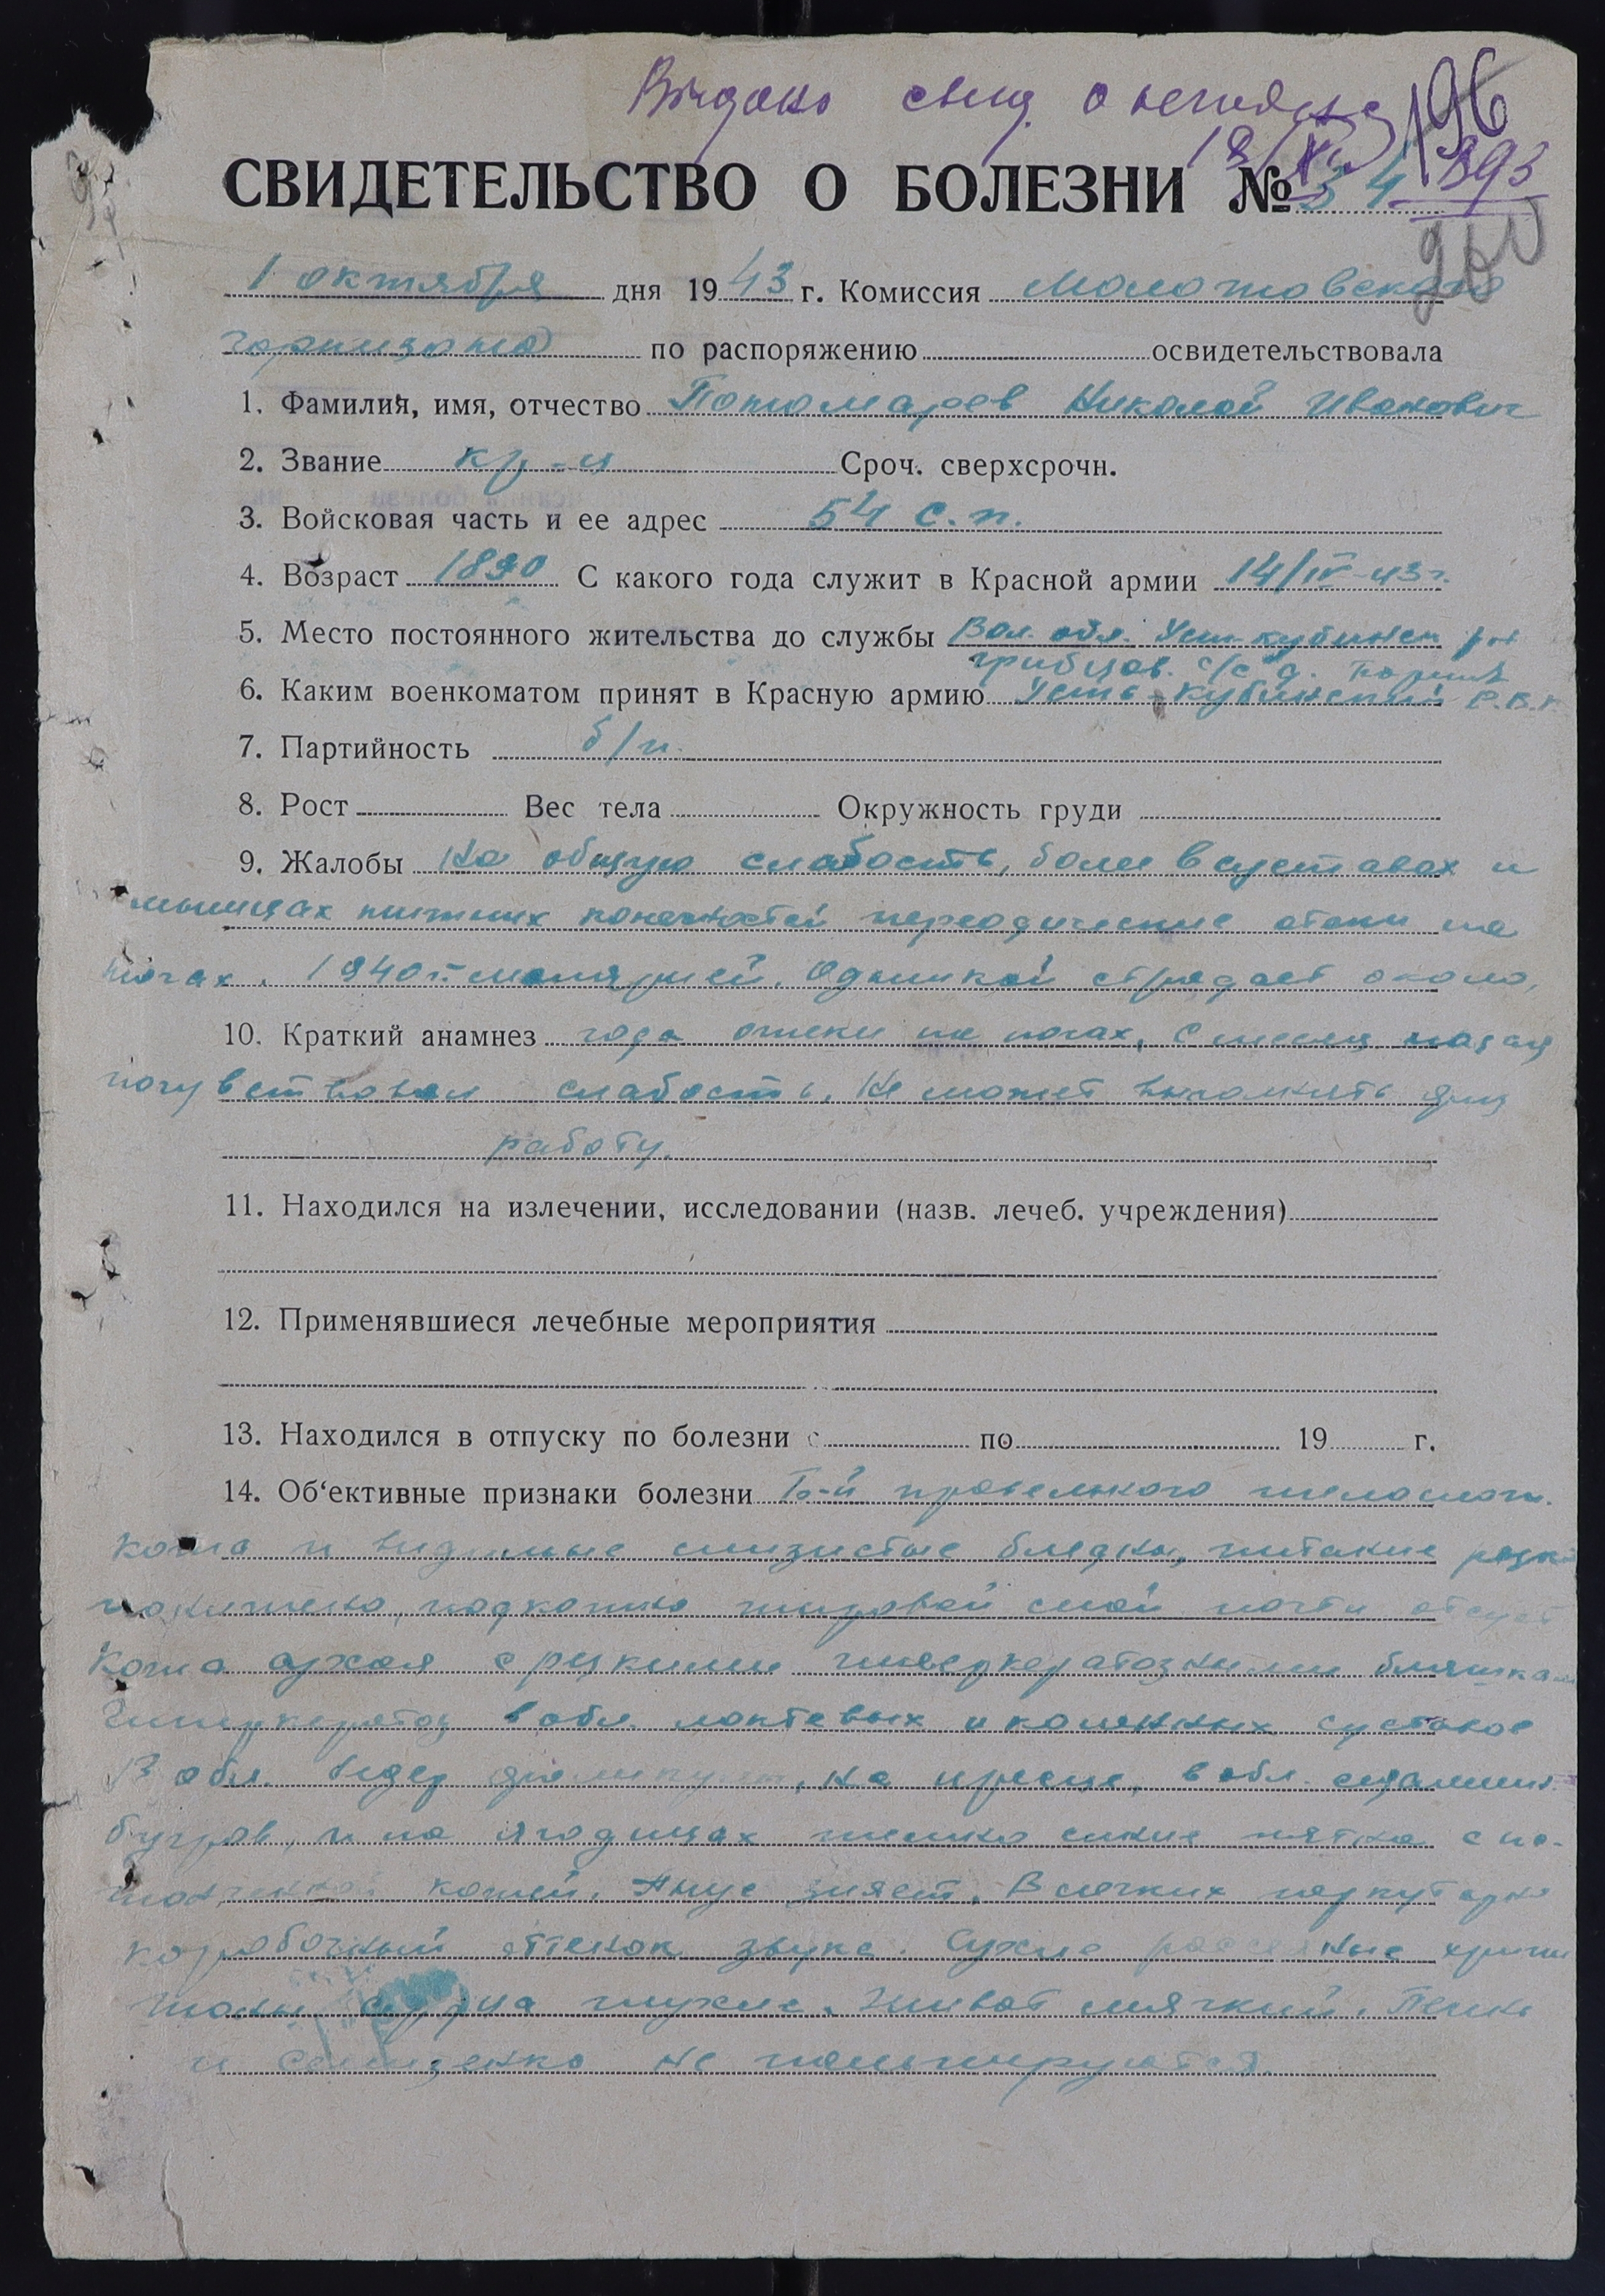 Выдано свид. о
196
18/XI
393
СВИДЕТЕЛЬСТВО О БОЛЕЗНИ № 34
1 октября дня 1943 г. Комиссия Молотовского
гарнизона по распоряжению освидетельствовала
1. Фамилия, имя, отчество Пономарев Николай Иванович
2. Звание кр-ц Сроч. сверхсрочн.
3. Войсковая часть и ее адрес 54 с.п.
4. Возраст 1890 С какого года служит в Красной армии 14/IV-43г.
5. Место постоянного жительства до службы Вол. обл. Уст-кубинск р-н
с/с д.
6. Каким военкоматом принят в Красную армию Усть-Кубинский Р.В.К
7. Партийность б/п.
8. Рост Вес тела Окружность груди
9. Жалобы На общую слабость, боли в суставах и
мышцах нижних конечностей переодические отеки на
ногах. 1940 г. малярией. Одышкой страдает около
10. Краткий анамнез года отеки на ногах, с месяц назад
почувствовал слабость. Не может выполнять физ
работу.
11. Находился на излечении, исследовании (назв. лечеб. учреждения)
12. Применявшиеся лечебные мероприятия
13. Находился в отпуску по болезни с по 19 г.
14. Об'ективные признаки болезни Б-й правельного телослож.
кожа и видимые слизистые бледны, питание резко
понижено, подкожно жировой слой почти отсут
Кожа сухая с резкими гиперкератозными бляшками
Гиперкератоз в обл. локтевых и коленных суставов
В обл. на крестце, в обл. седалищн.
бугров, и на ягодицах темно синие пятна с ис-
тонченной кожей. Анус зияет. В легких перкуторно
коробочный оттенок звука. Сухие рассеяные хрипы
тоны сердца глухие. Живот мягкий. Печень
и селезенка не пальпируются.